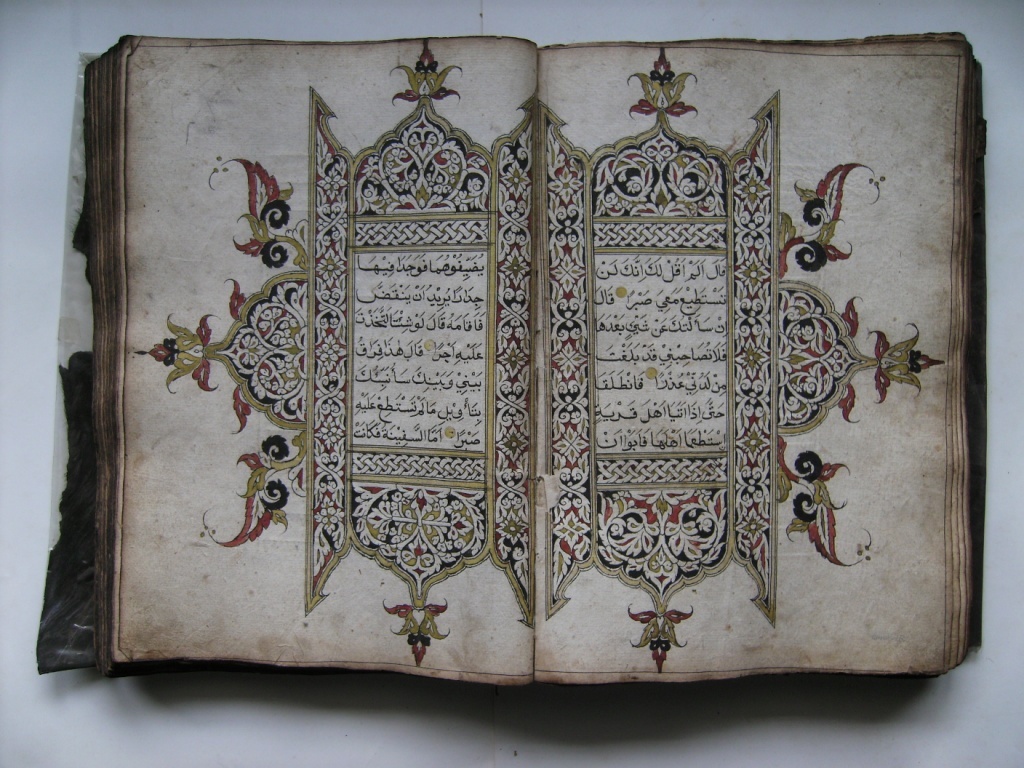 قَالَ اَلَمْ اَقُلْ لَكَ اِنَّكَ لَنْ
تَسْتَطِيْعَ مَعِيَ صَبْرًا قَالَ
اِنْ سَأَلْتُكَ عَنْ شَيْءٍ بَعْدَهَا
فَلَا تُصَاحِبْنِيْ قَدْ بَلَغْتَ
مِنْ لَدُنِّيْ عُذْرًا فَانْطَلَقَا
حَتَّى اِذَا اَتَيَا اَهْلَ قَرْيَةٍ
اسْتَطْعَمَا اَهْلَهَا فَاَبَوْا اَنْ
يُضَيِّفُوْهُمَا فَوَجَدَا فِيْهَا
جِدَارًا يُرِيْدُ اَنْ يَنْقَضَّ
فَاَقَامَهُ قَالَ لَوْ شِئْتَ لَتَّخَذْتَ
عَلَيْهِ اَجْرًا قَالَ هٰذَا فِرَاقُ
بَيْنِيْ وَبَيْنِكَ سَاُنَبِّئُكَ
بِتَأْوِيْلِ مَا لَمْ تَسْتَطِعْ عَلَيْهِ
صَبْرًا اَمَّا السَّفِيْنَةُ فَكَانَتْ